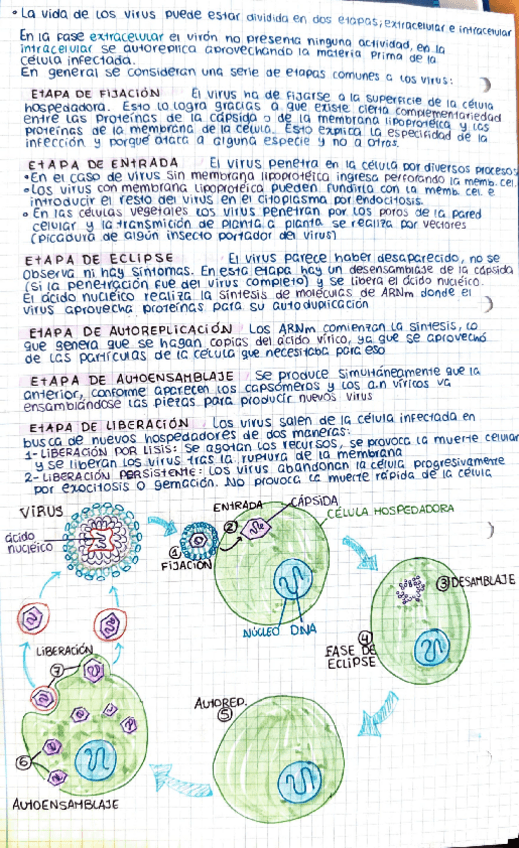 • La vida de los virus puede estar dividida en dos etapas; extracelular e intracelular
En la fase extracelular el virón no presenta ninguna actividad, en la
intracelular se autoreplica aprovechando la materia prima de la
célula infectada.
En general se consideran una serie de etapas comunes a los virus:
ETAPA DE FIJACIÓN El virus ha de fijarse a la superficie de la célula
hospedadora. Esto lo logra gracias a que existe cierta complementariedad
entre las proteínas de la cápsida o de la membrana lipoprotéica y las
proteínas de la membrana de la célula. Esto explica la especifidad de la
infección y porque ataca a alguna especie y no a otras.
ETAPA DE ENTRADA El virus penetra en la célula por diversos procesos
• En el caso de virus sin membrana lipoprotéica ingresa perforando la memb. cel.
• Los virus con membrana lipoproteica pueden fundirla con la memb. cel. e
introducir el resto del virus en el citoplasma por endocitosis.
• En las células vegetales los virus penetran por los poros de la pared
celular y la transmición de planta a planta se realiza por vectores
(picadura de algún insecto portador del virus)
ETAPA DE ECLIPSE El virus parece haber desaparecido, no se
observa ni hay síntomas. En esta etapa hay un desensamblaje de la cápsida
(si la penetración fue del virus completo) y se libera el ácido nucléico.
El ácido nucléico realiza la síntesis de moléculas de ARNm donde el
virus aprovecha proteínas para su autoduplicación
ETAPA DE AUTOREPLICACIÓN Los ARNm comienzan la síntesis, lo
que genera que se hagan copias del ácido vírico, ya que se aprovechó
de las partículas de la célula que necesitaba para eso
ETAPA DE AUTOENSAMBLAJE Se produce simultáneamente que la
anterior, conforme aparecen los capsómeros y los a.n víricos va
ensamblándose las piezas para producir nuevos virus
ETAPA DE LIBERACIÓN Los virus salen de la célula infectada en
busca de nuevos hospedadores de dos maneras:
1- LIBERACIÓN POR LISIS: Se agotan los recursos, se provoca la muerte celular
y se liberan los virus tras la ruptura de la membrana
2- LIBERACIÓN PERSISTENTE: Los virus abandonan la célula progresivamente
por exocitosis o gemación. No provoca la muerte rápida de la célula
VIRUS
ácido
nucléico
① FIJACIÓN
ENTRADA
②
CÁPSIDA
CÉLULA HOSPEDADORA
NÚCLEO DNA
③ DESAMBLAJE
④
FASE DE
ECLIPSE
AUTOREP.
⑤
LIBERACIÓN
⑦
⑥
AUTOENSAMBLAJE